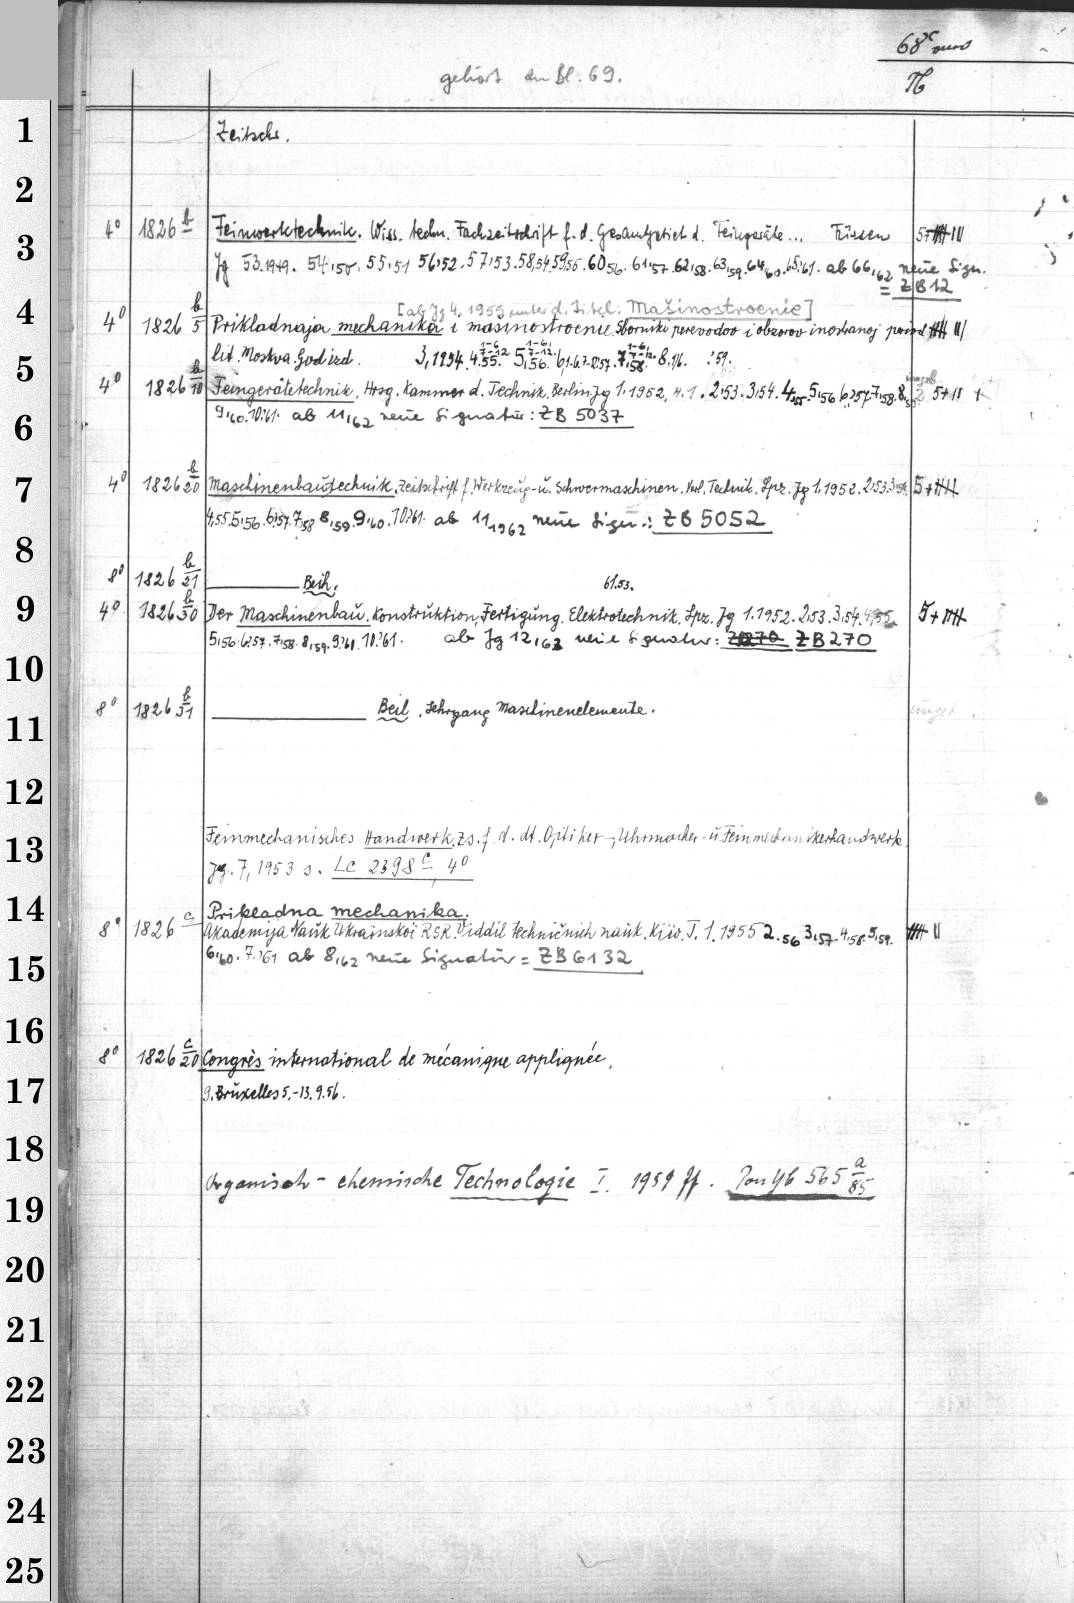 68c
gehört zu Bl. 69.
Zeitschr.
4° 1826 b Feinwerktechnik. Wiss. techn. Fachzeitschrift f. d. Gesamtgebiet d. Feingeräte... Füssen 5+
Jg 53.1949. 54,50. 55,51 56,52. 57,53. 58,54. 59,55. 60,56. 61,57. 62,58. 63,59. 64,60. 65,61. ab 66,62 neue Sign.
= ZB 12
[ab Jg 4. 1955 unter d. Titel: Mašinostroenie]
4° 1826 b/5 Prikladnaja mechanika i mašinostroenie. Sborniki perevodov i obzorov inostranoj period
lit. Moskva. God izd. 3,1954. 4,55. 1-6. 7-12. 5,56. 1-6. 7-12. 7,58. 1-6. 7-12. 59.
4° 1826 b/10 Feingerätetechnik. Hrsg. Kammer d. Technik. Berlin. Jg 1.1952, H.1. 2,53. 3,54. 4,55. 5,56 6,57 7,58. 8,59 5+II
9,60. 10,61. ab 11,62 neue Signatur: ZB 5037
4° 1826 b/20 Maschinenbautechnik. Zeitschrift f. Werkzeug- u. Schwermaschinen. Verl. Technik. Lpz. Jg 1.1952. 2,53. 3,54. 5+
4,55. 5,56. 6,57. 7,58 8,59. 9,60. 10,61. ab 11,1962 neue Sign.: ZB 5052
8° 1826 b/21 Beih. 61.53.
4° 1826 b/30 Der Maschinenbau. Konstruktion, Fertigung, Elektrotechnik. Lpz. Jg 1.1952. 2,53. 3,54. 4,55. 5+
5,56. 6,57. 7,58. 8,59. 9,61. 10,61. ab Jg 12,63 neue Signatur: ZB270 ZB270
8° 1826 b/31 Beil. Lehrgang Maschinenelemente.
Feinmechanisches Handwerk. Zs. f. d. dt. Optiker-, Uhrmacher- u. Feinmechanikerhandwerk
Jg. 7, 1953 s. Lc 2398 c 4°
Prikladna mechanika.
8° 1826 c Akademija Nauk Ukrainskoi RSR. Viddil techničnich nauk. Kijiv. T. 1. 1955 2.56 3,57. 4,58. 5,59.
6,60. 7,61 ab 8,62 neue Signatur = ZB 6132
8° 1826 c/20 Congrès international de mécanique appliquée.
9. Bruxelles 5.-13.9.56.
Organisch-chemische Technologie I. 1959 ff. 565 a/85